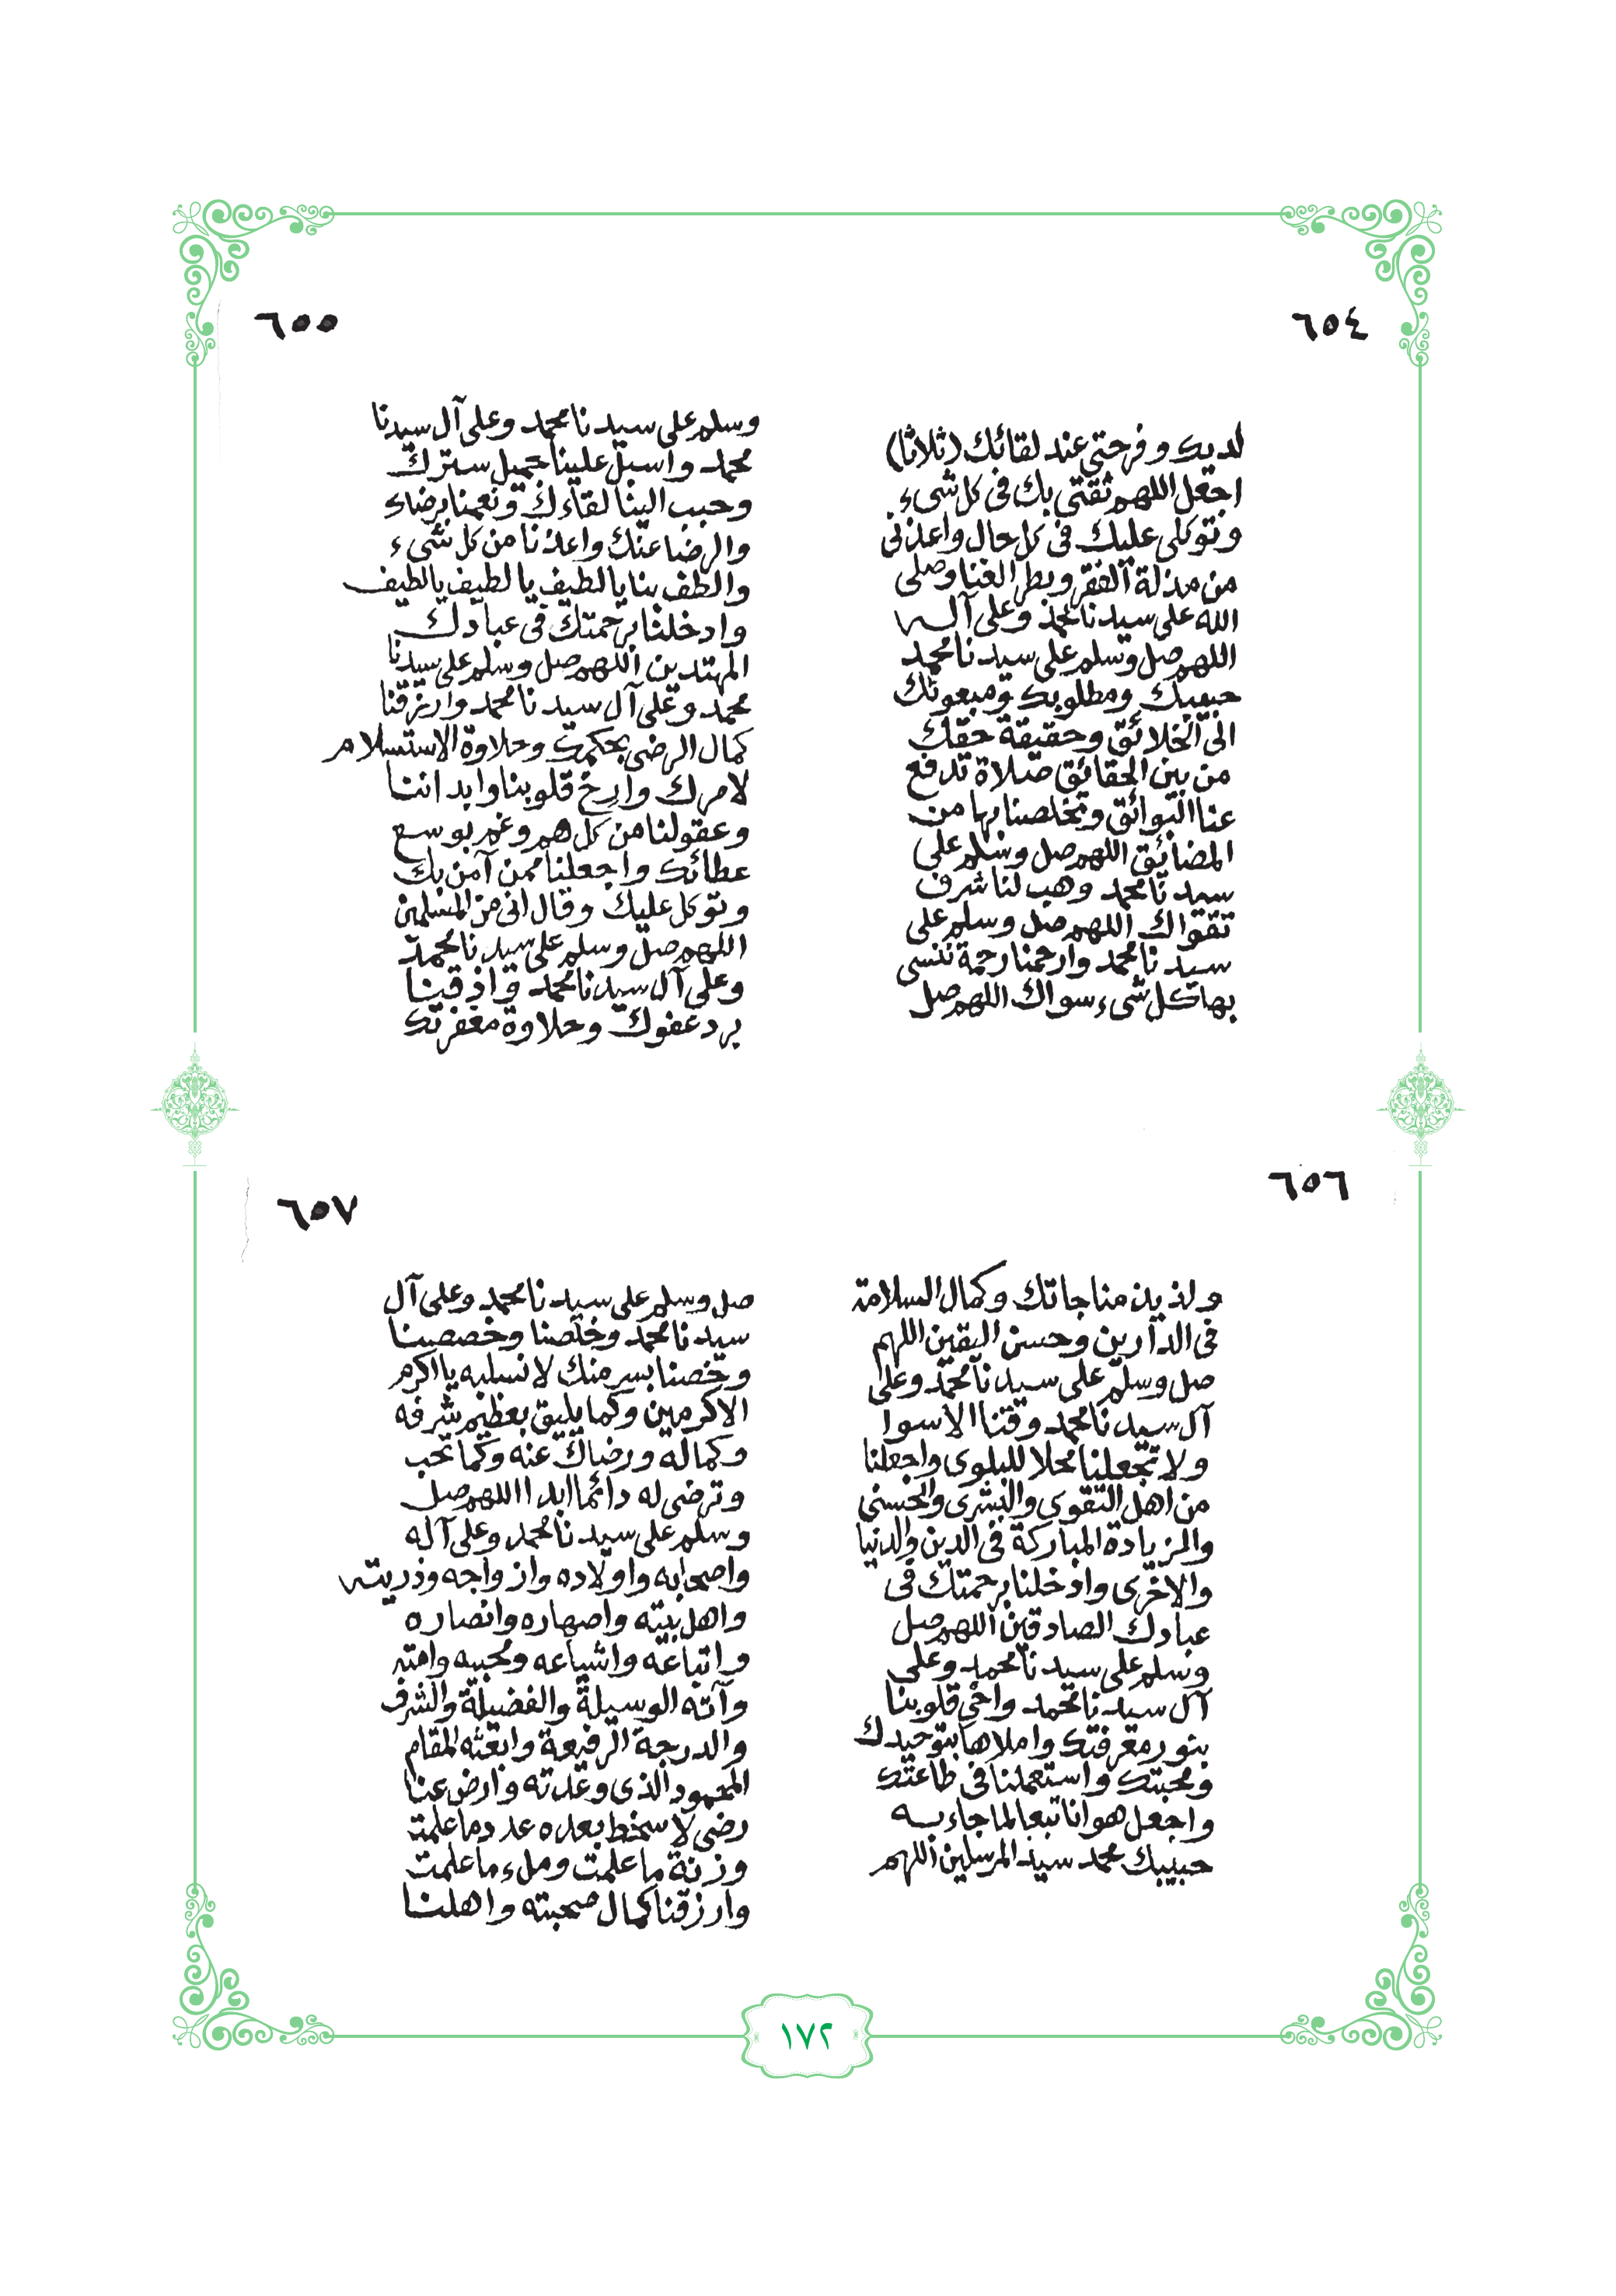 ٦٥٤
لديك وفرحتى عند لقائك (ثلاثا)
اجعل اللهم ثقتى بك فى كل شىء
وتوكلى عليك فى كل حال واعذنى
من مذلة الفقر وبطر الغنا وصلى
الله على سيدنا محمد وعلى آله
اللهم صل وسلم على سيدنا محمد
حبيبك ومطلوبك ومبعوثك
الى الخلائق وحقيقة حقك
من بين الحقائق صلاة تدفع
عنا البوائق وتخلصنا بها من
المضائق اللهم صل وسلم على
سيدنا محمد وهب لنا شرف
تقواك اللهم صل وسلم على
سيدنا محمد وارحمنا رحمة ننسى
بها كل شىء سواك اللهم صل
٦٥٥
وسلم على سيدنا محمد وعلى آل سيدنا
محمد واسبل علينا جميل سترك
وحبب الينا لقاءك ونعمنا برضاك
والرضا عنك واعذنا من كل شىء
والطف بنا يا لطيف يا لطيف يا لطيف
وادخلنا برحمتك فى عبادك
المهتدين اللهم صل وسلم على سيدنا
محمد وعلى آل سيدنا محمد وارزقنا
كمال الرضى بحكمك وحلاوة الاستسلام
لامرك وارح قلوبنا وابداننا
وعقولنا من كل هم وغم بوسع
عطائك واجعلنا ممن آمن بك
وتوكل عليك وقال انى من المسلمين
اللهم صل وسلم على سيدنا محمد
وعلى آل سيدنا محمد واذقينا
برد عفوك وحلاوة مغفرتك
٦٥٦
ولذيذ مناجاتك وكمال السلامة
فى الدارين وحسن اليقين اللهم
صل وسلم على سيدنا محمد وعلى
آل سيدنا محمد وقنا الاسوا
ولا تجعلنا محلا للبلوى واجعلنا
من اهل التقوى والبشرى والحسنى
والزيادة المباركة فى الدين والدنيا
والاخرى وادخلنا برحمتك فى
عبادك الصادقين اللهم صل
وسلم على سيدنا محمد وعلى
آل سيدنا محمد واحى قلوبنا
بنور معرفتك واملاها بتوحيدك
ومحبتك واستعملنا فى طاعتك
واجعل هوانا تبعا لما جاء به
حبيبك محمد سيد المرسلين اللهم
٦٥٧
صل وسلم على سيدنا محمد وعلى آل
سيدنا محمد وخلصنا وخصصنا
وخصنا بسر منك لا نسلبه يا اكرم
الاكرمين وكما يليق بعظيم شرفه
وكماله ورضاك عنه وكما تحب
وترضى له دائما ابدا اللهم صل
وسلم على سيدنا محمد وعلى آله
واصحابه واولاده وازواجه وذريته
واهل بيته واصهاره وانصاره
واتباعه واشياعه ومحبيه وامته
وآته الوسيلة والفضيلة والشرف
والدرجة الرفيعة وابعثه المقام
المحمود الذى وعدته وارض عنا
رضى لا سخط بعده عدد ما علمت
وزنة ما علمت وملء ما علمت
وارزقنا كمال صحبته واهلنا
١٧٢